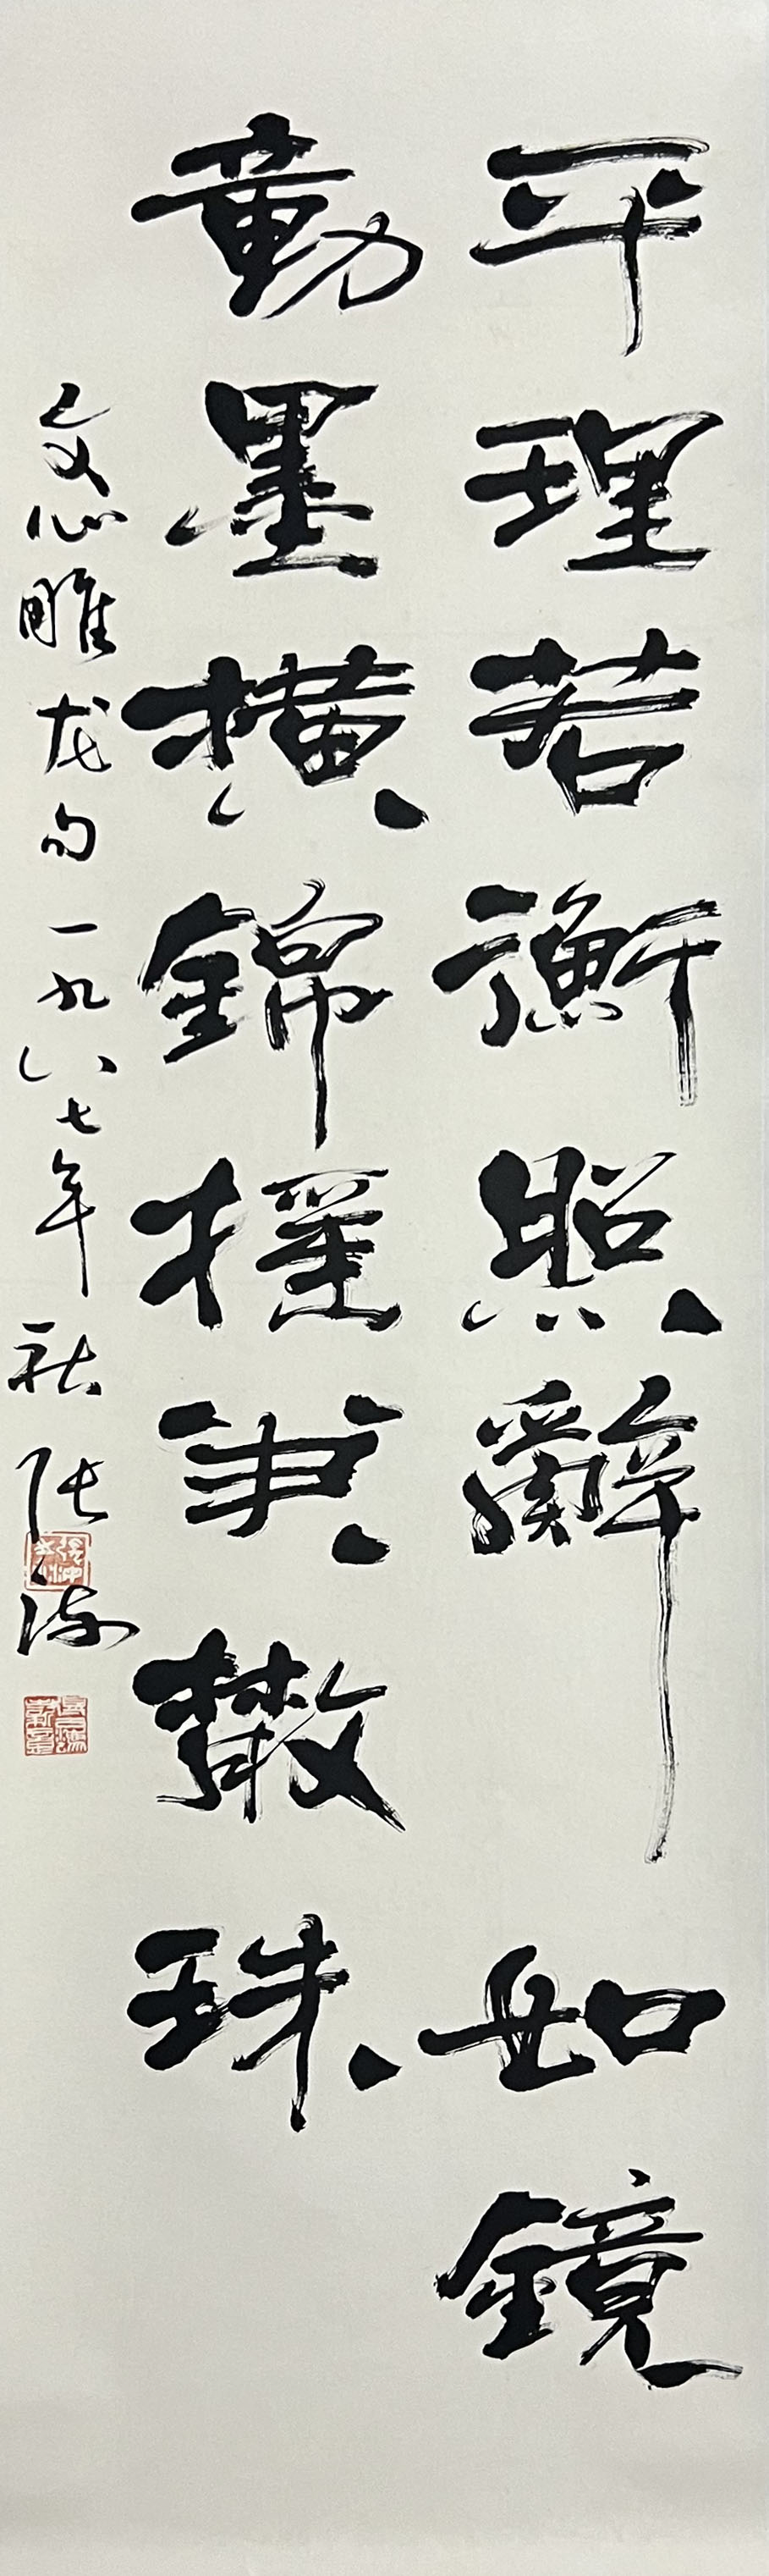 平理若衡照辭如鏡
動墨横錦摇筆散珠
文心雕龙句一九八七年秋张海